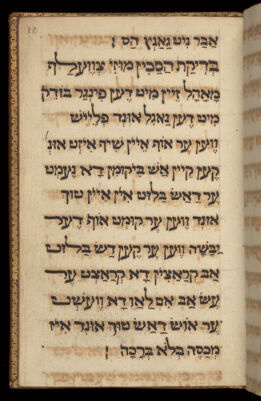 10
אבר ניט גאנץ הס ׃
בדיקת הסכין מוזי צוועלף
מאהל זיין מיט דען פינגר בודק
מיט דען נאגל אונד פלייש
ווען ער אויף איין שיף איזט אונ׳
קען קיין אש ביקומן דא נעמט
ער דאש בלוט אין איין טוך
אונד ווען ער קומט אויף דער
יבשה ווען ער קען דש בלוט
אב קראצין דא קראצט ער
עש אב אים לאו דא וועשט
ער אויש דאש טוך אונד איז
מכסה בלא ברכה ׃